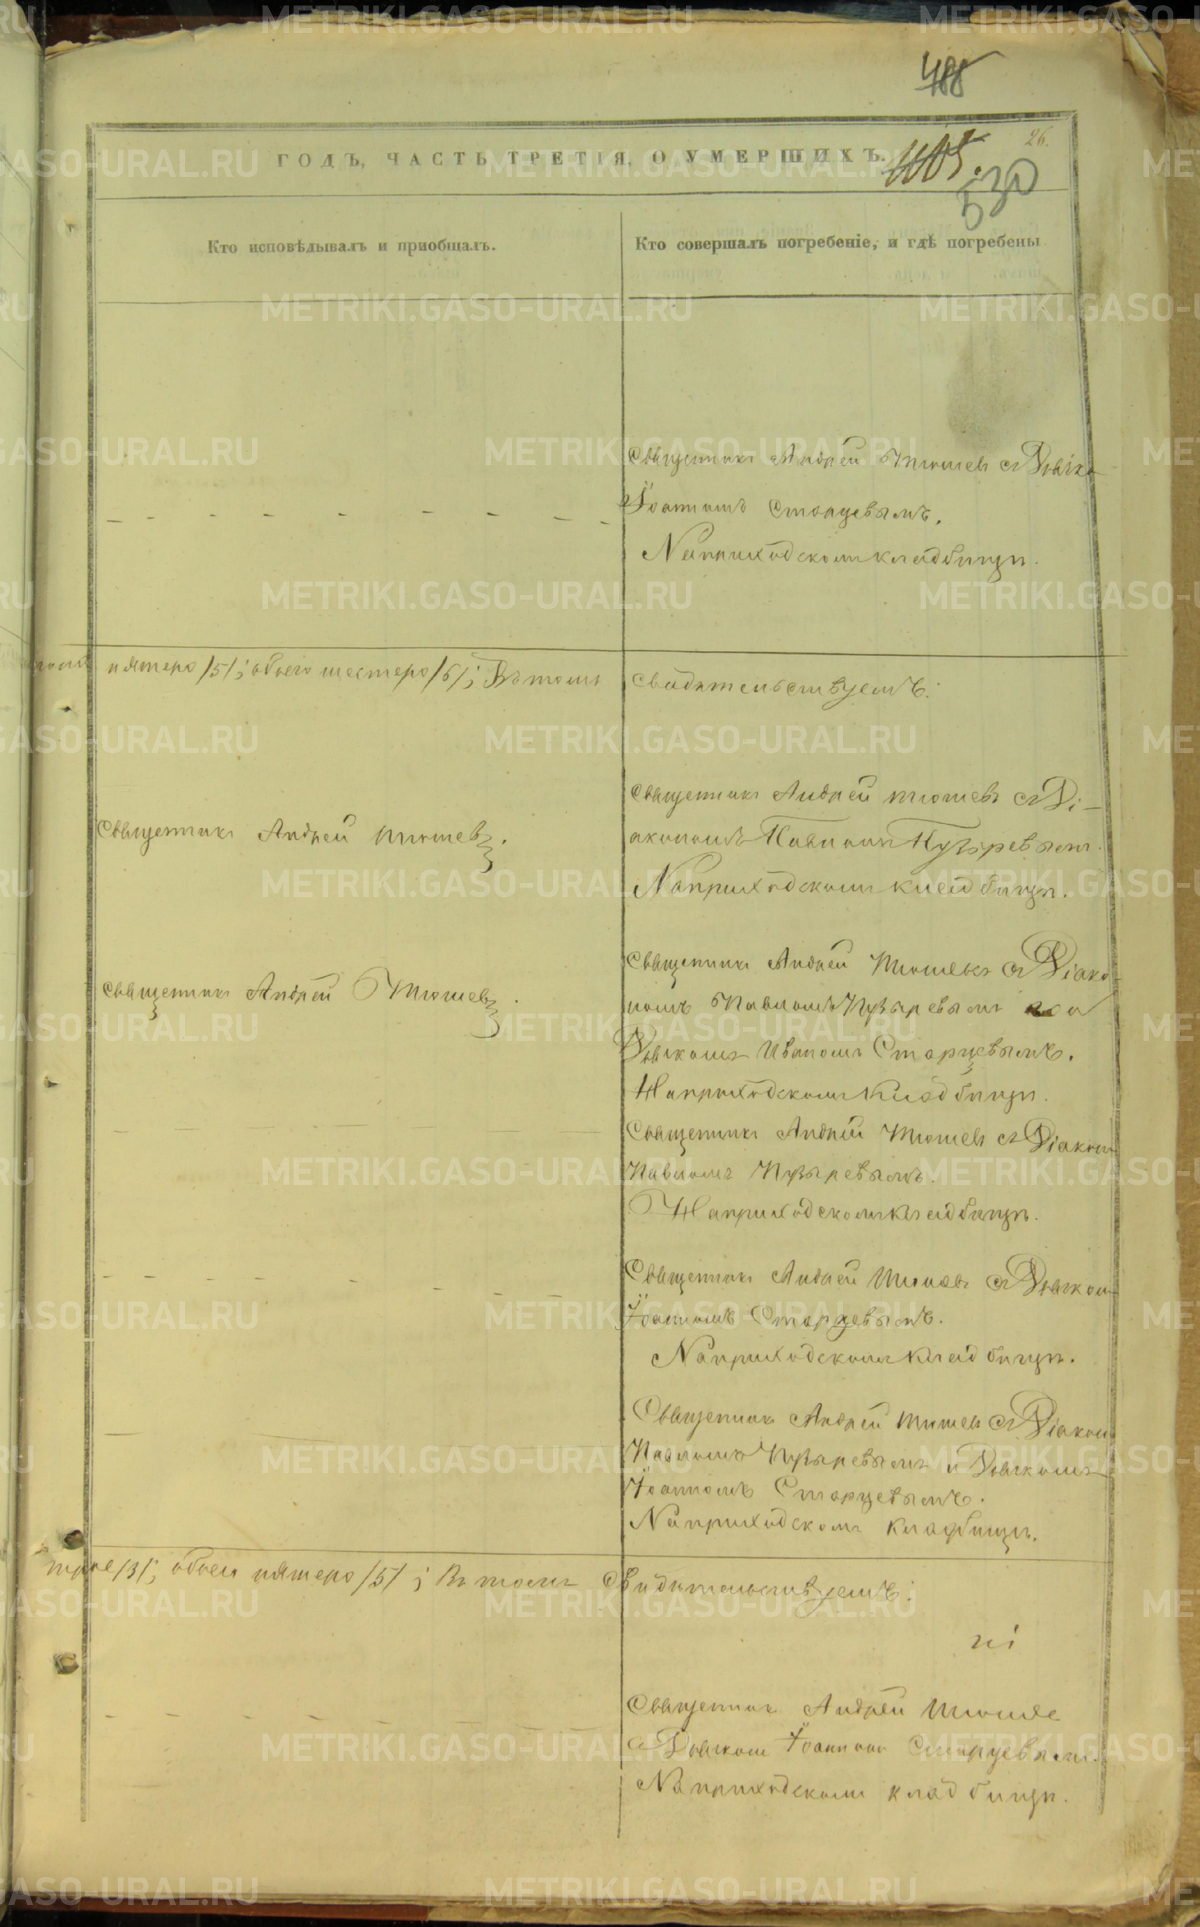 488
26.
ГОДЪ, ЧАСТЬ ТРЕТІЯ, О УМЕРШИХЪ.
530
Кто исповѣдывалъ и пріобщалъ.
Кто совершалъ погребеніе, и гдѣ погребены
Священникъ Андрей Тюшевъ съ Дьячко
Іоанномъ Старцевымъ.
На приходскомъ кладбищѣ.
пятеро /5/; обоего шестеро /6/; Въ томъ
свидѣтельствуемъ:
Священникъ Андрей Тюшевъ съ Ді-
Священникъ Андрей Тюшевъ.
акономъ Павломъ Пузыревымъ.
На приходскомъ кладбищѣ.
Священникъ Андрей Тюшевъ съ Діако-
Священникъ Андрей Тюшевъ.
номъ Павломъ Пузыревымъ и
Дьячкомъ Иваномъ Старцевымъ.
На приходскомъ кладбищѣ.
Священникъ Андрей Тюшевъ съ Діаконом
Павломъ Пузыревымъ.
На приходскомъ кладбищѣ.
Священникъ Андрей Тюшевъ съ Дьячком
Іоанномъ Старцевымъ.
На приходскомъ кладбищѣ.
Священникъ Андрей Тюшевъ съ Діакон
Павломъ Пузыревымъ и Дьячкомъ
Іоанномъ Старцевымъ.
На приходскомъ кладбищѣ.
трое /3/; обоего пятеро /5/; Въ томъ свидѣтельствуемъ:
Священникъ Андрей Тюшевъ
съ Дьячком Іоанном Старцевымъ.
На приходскомъ кладбищѣ.
METRIKI.GASO-URAL.RU